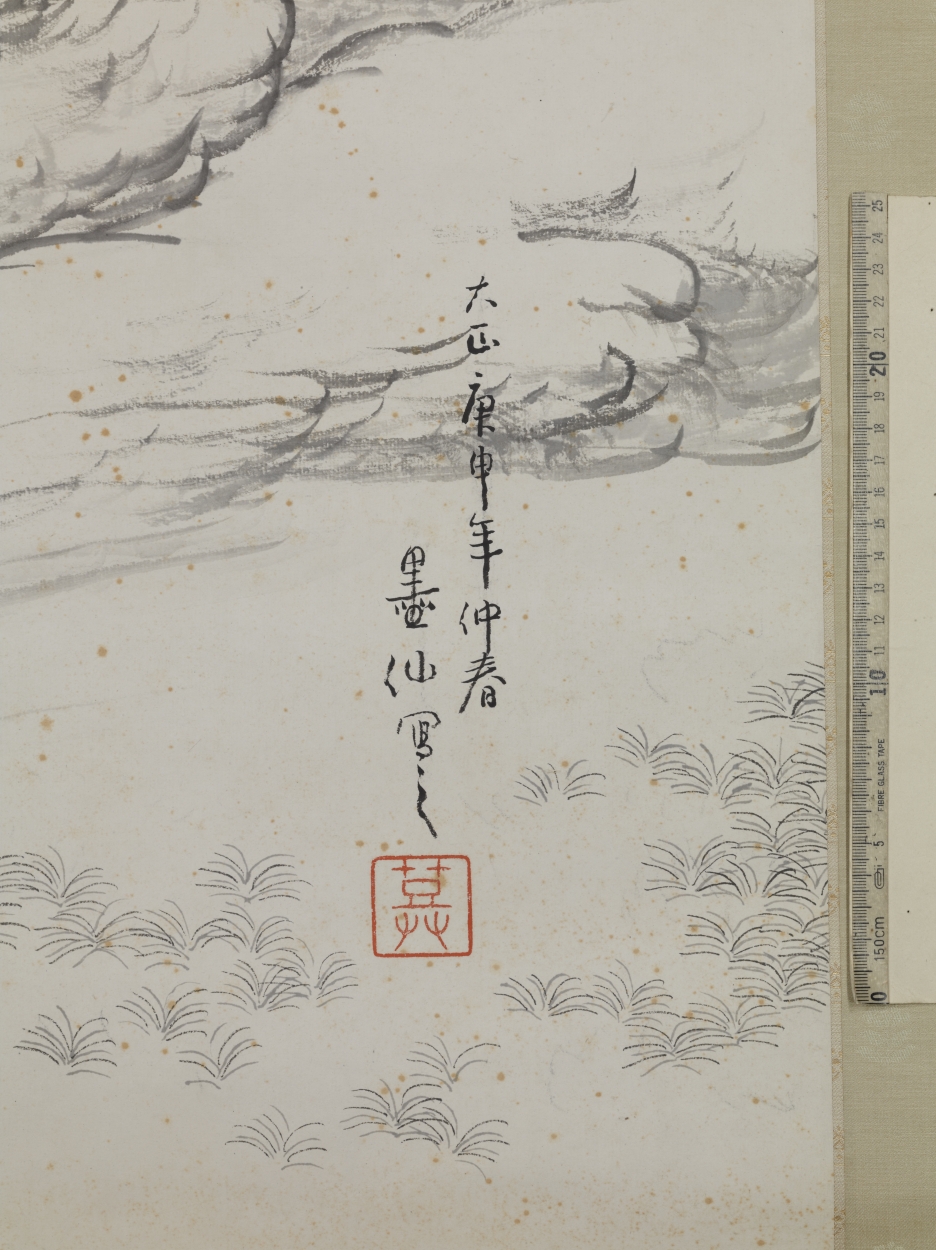 大正庚申年仲春
墨仙寫之
25
24
23
22
21
20
19
18
17
16
15
14
13
12
11
10
FIBRE GLASS TAPE
5
150cm
0